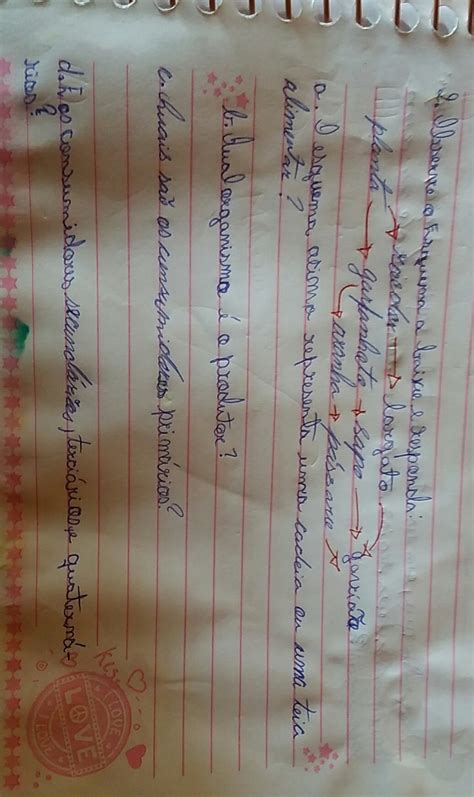 2. Observe o Esquema a baixo e responda:
planta → roedor → lagarto
→ gafanhoto → sapo → gavião
→ aranha → pássaro →
a. O esquema acima representa uma cadeia ou uma teia
alimentar?
b. Qual organismo é o produtor?
c. Quais são os consumidores primários?
d. E os consumidores secundários, terciários e quaterná-
rios?
Kiss
LOVE
I LOVE
I LOVE